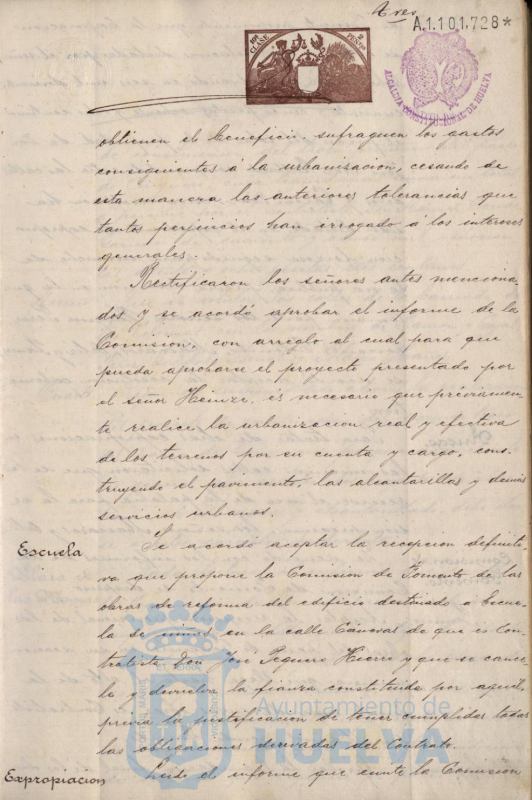 tres
A.1.101.728*
10ª CLASE 2 PESETAS
ALCALDIA CONSTITUCIONAL DE HUELVA
obtienen el beneficio, sufraguen los gastos
consiguientes á la urbanizacion, cesando de
esta manera las anteriores tolerancias que
tantos perjuicios han irrogado á los intereses
generales.
Rectificaron los señores antes menciona-
dos y se acordó aprobar el informe de la
Comision, con arreglo al cual para que
pueda aprobarse el proyecto presentado por
el señor Heinze, és necesario que préviamen-
te realice la urbanizacion real y efectiva
de los terrenos por su cuenta y cargo, cons-
truyendo el pavimento, las alcantarillas y demás
servicios urbanos.
Escuela
Se acordó aceptar la recepcion definiti-
va que propone la Comision de Fomento de las
obras de reforma del edificio destinado a Escue-
la de niños en la calle Cánovas de que és con-
tratista Don José Hierro y que se cance-
le y devuelva la fianza constituida por aquel,
prévia la justificacion de tener cumplidas todas
las obligaciones derivadas del contrato.
Ayuntamiento de
HUELVA
Expropiacion
Leido el informe que emite la Comision